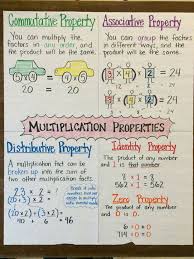 Commutative Property
You can multiply the
factors in any order, and
the product will be the same.
20 = 20
Associative Property
You can group the factors
in different ways, and the
product will be the same.
= 24
= 24
MULTIPLICATION PROPERTIES
Distributive Property
A multiplication fact can be
broken up into the sum of
two other multiplication facts.
23 x 2 =
(20 x 2) + (3 x 2) =
40 + 6 = 46
Identity Property
The product of any number
and 1 is that number.
8 x 1 = 8
562 x 1 = 562
Zero Property
The product of any number
and 0 is 0.
6 x 0 = 0